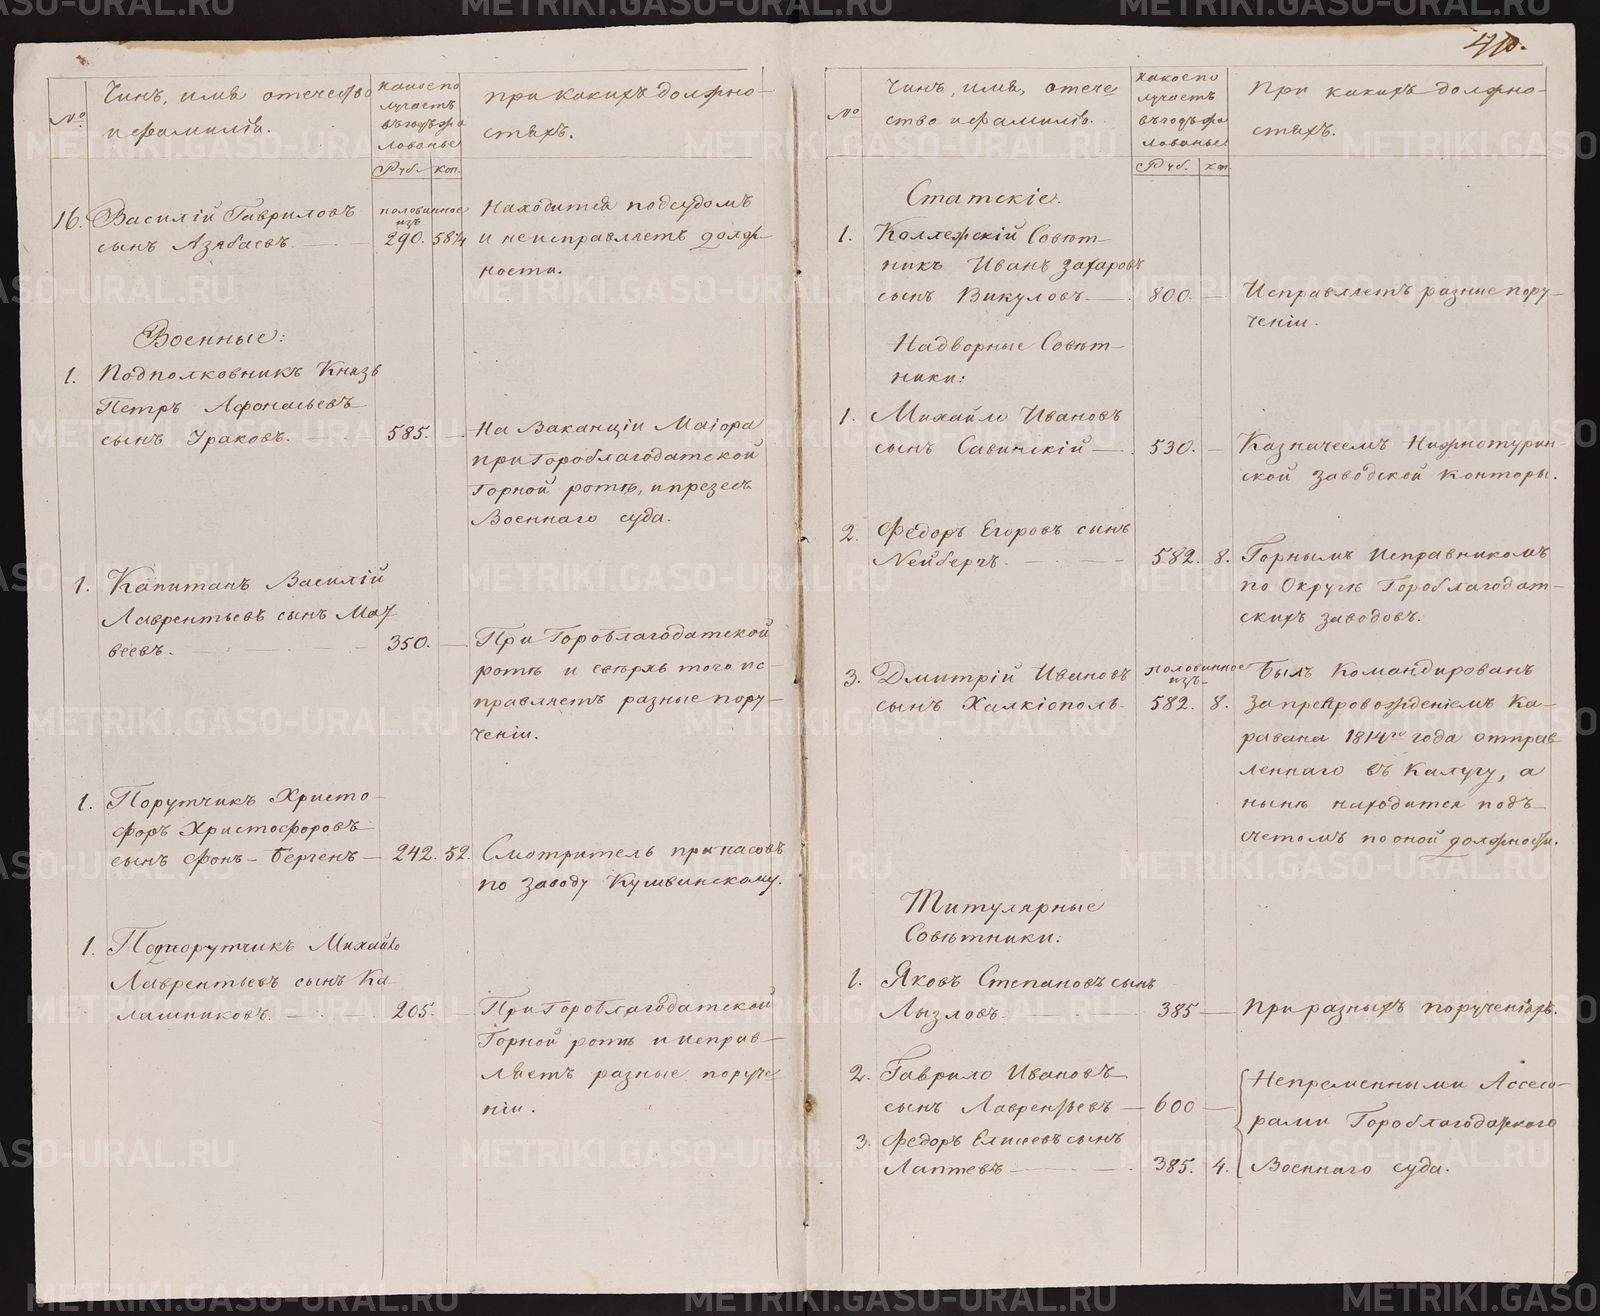 №
Чинъ, имя отечество
и фамилія.
какое по
лучаетъ
въ годъ жа
лованье
Руб. коп.
при какихъ должно-
стяхъ.
16. Василій Гавриловъ
сынъ Азябаевъ.
половинное
изъ
290. 58¼
Находится подсудомъ
и неисправляетъ долж-
ности.
Военные:
1. Подполковникъ Князь
Петръ Афонасьевъ
сынъ Ураковъ. 585.
На Ваканціи Маіора
при Гороблагодатской
Горной ротѣ, и презесъ
Военнаго суда.
1. Капитанъ Василій
Лаврентьевъ сынъ Мат
веевъ. 350.
При Гороблагодатской
ротѣ и сверхъ того ис-
правляетъ разные пору-
ченіи.
1. Порутчикъ Христо-
форъ Христофоровъ
сынъ фонъ-Бергенъ 242. 52.
Смотритель припасовъ
по заводу Кушвинскому.
1. Подпорутчикъ Михайло
Лаврентьевъ сынъ Ка
лашниковъ. 205.
При Гороблагодатской
Горной ротѣ и исправ-
ляетъ разные поруче
ніи.
40.
№
Чинъ, имя, отече-
ство и фамилія.
какое по
лучаетъ
въ годъ жа
лованье
Руб. коп.
При какихъ должно-
стяхъ.
Статскіе.
1. Коллежскій Совѣт-
никъ Иванъ Захаровъ
сынъ Викуловъ. 800.
Исправляетъ разные пору-
ченіи.
Надворные Совѣт-
ники:
1. Михайло Ивановъ
сынъ Савинскій 530.
Казначеемъ Нижнотурин-
ской заводской конторы.
2. Федоръ Егоровъ сынъ
Нейберчъ. 582. 8.
Горнымъ Исправникомъ
по Округѣ Гороблагодат-
скихъ заводовъ.
3. Дмитрій Ивановъ
сынъ Халкіополь.
половинное
изъ
582. 8.
Былъ Командированъ
за препровожденіемъ Ка-
равана 1814го года отправ-
леннаго въ Калугу, а
нынѣ находится подъ
счетомъ по оной должности.
Титулярные
Совѣтники:
1. Яковъ Степановъ сынъ
Лызловъ. 385
При разныхъ порученіяхъ.
2. Гаврило Ивановъ
сынъ Лаврентьевъ 600
3. Федоръ Елисеевъ сынъ
Лаптевъ 385. 4.
Непременными Ассесо-
рами Гороблагодатского
Военнаго суда.
METRIKI.GASO-URAL.RU